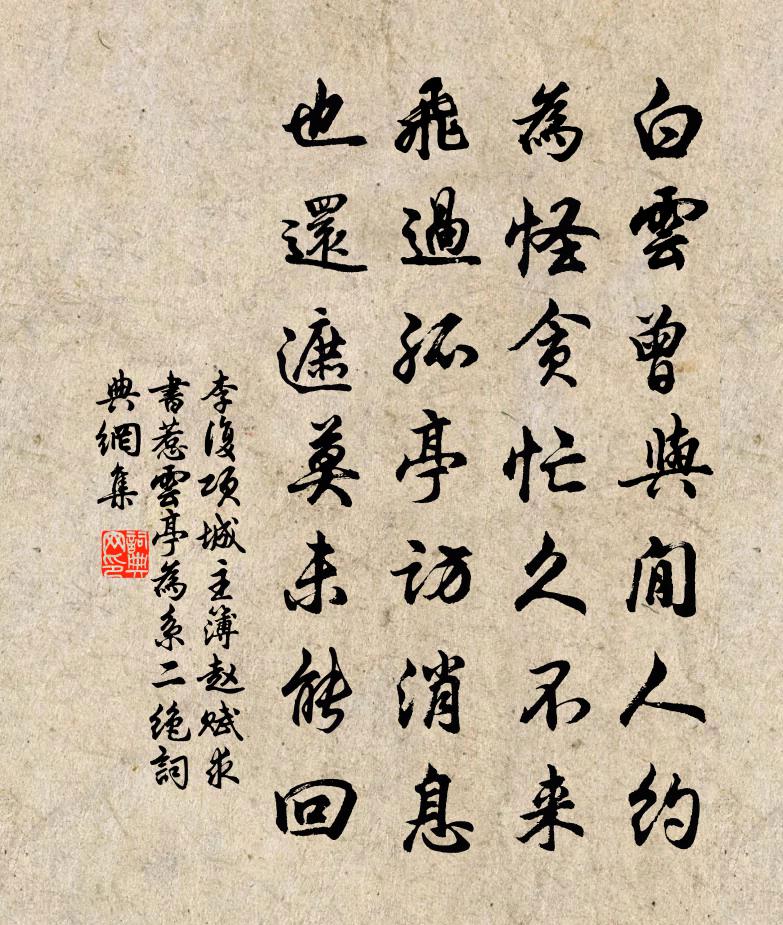 白雲曾與閒人約
為怪貪忙久不来
飛過孤亭訪消息
也還遮莫未能回
李復項城主簿赵赋求
書惹雲亭為系二绝詞
典網集
詞典网印